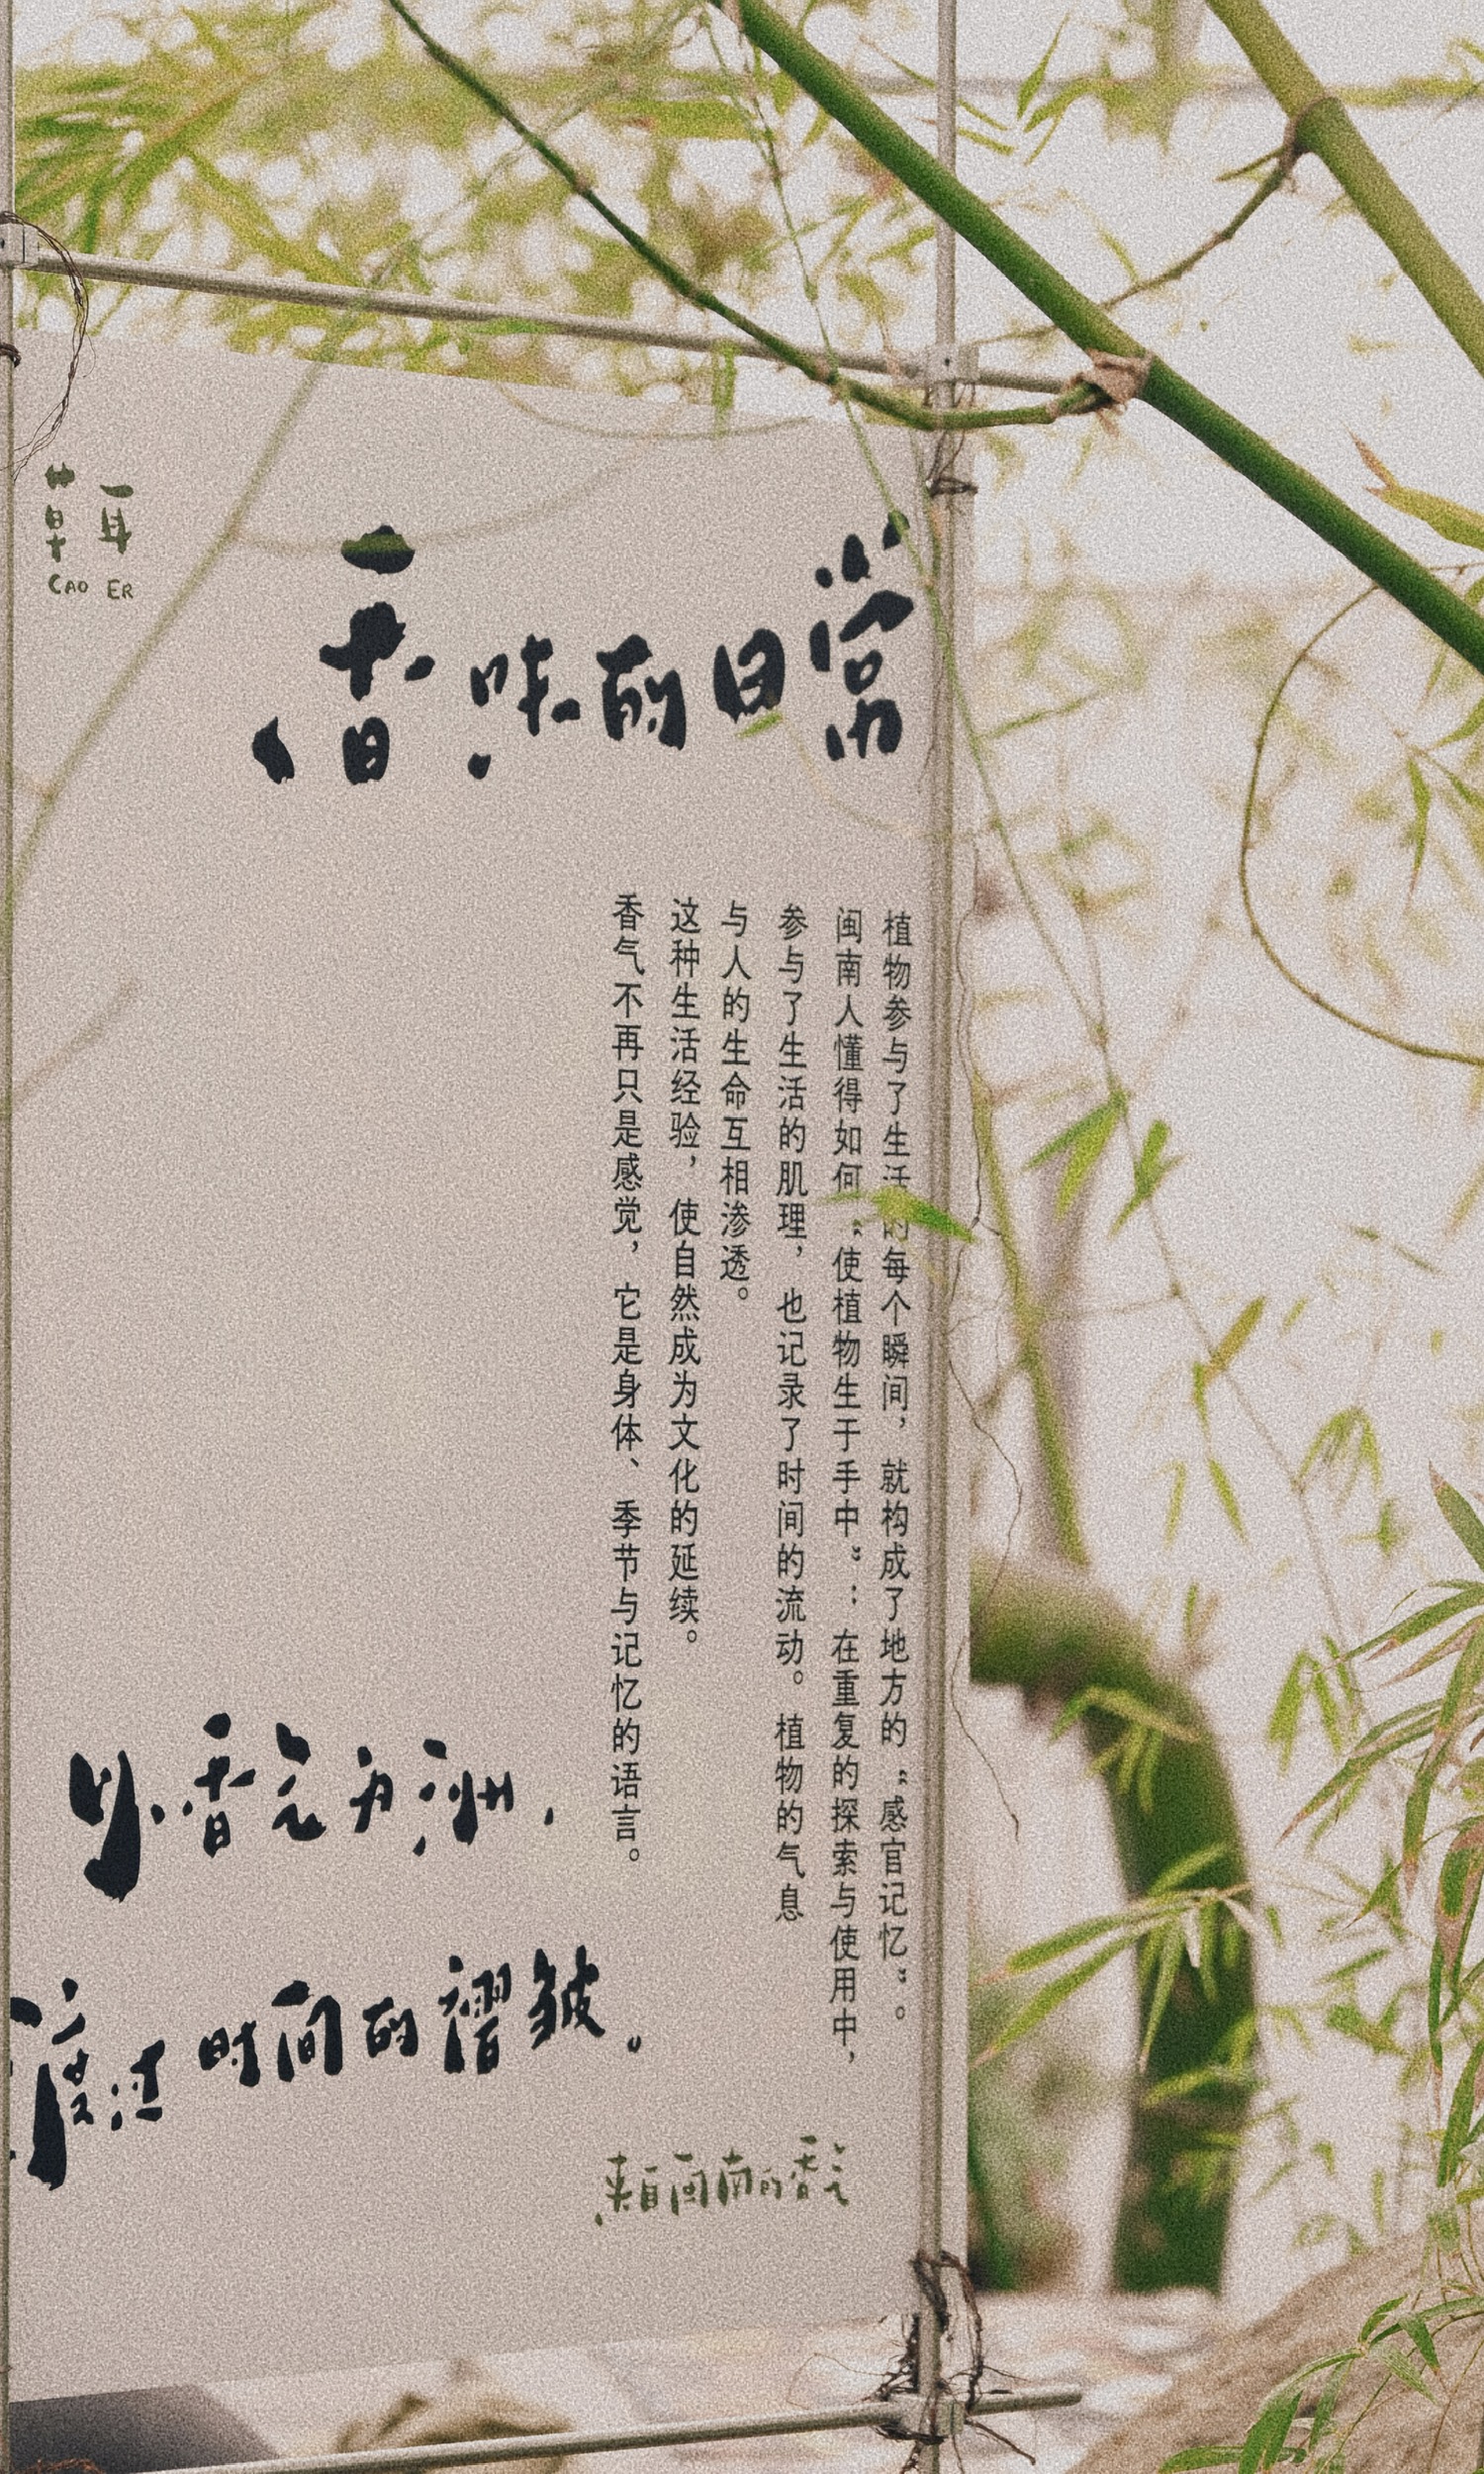 草耳
CAO ER
香味的日常
植物参与了生活的每个瞬间，就构成了地方的“感官记忆”。
闽南人懂得如何“使植物生于手中”：在重复的探索与使用中，
参与了生活的肌理，也记录了时间的流动。植物的气息
与人的生命互相渗透。
这种生活经验，使自然成为文化的延续。
香气不再只是感觉，它是身体、季节与记忆的语言。
以香气为洲，
渡过时间的褶皱。
来自闽南的香气